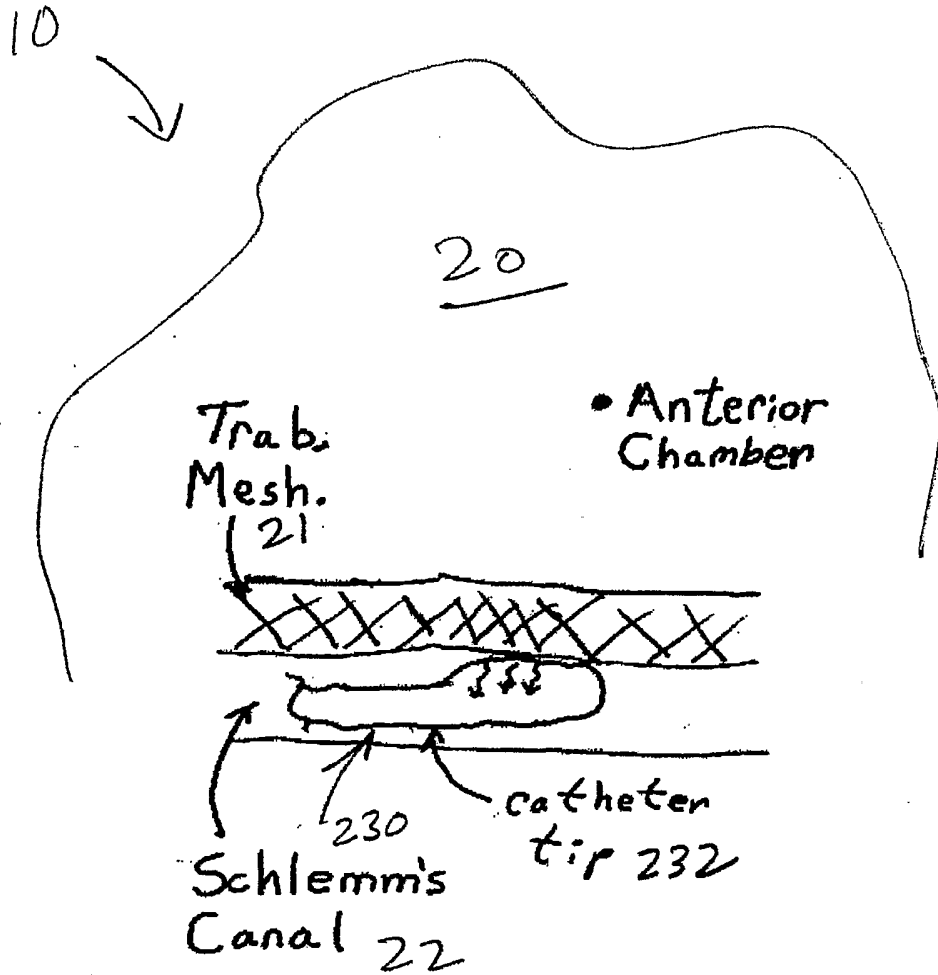 10
20
• Anterior
Chamber
Trab.
Mesh.
21
230
catheter
tip 232
Schlemm's
Canal 22